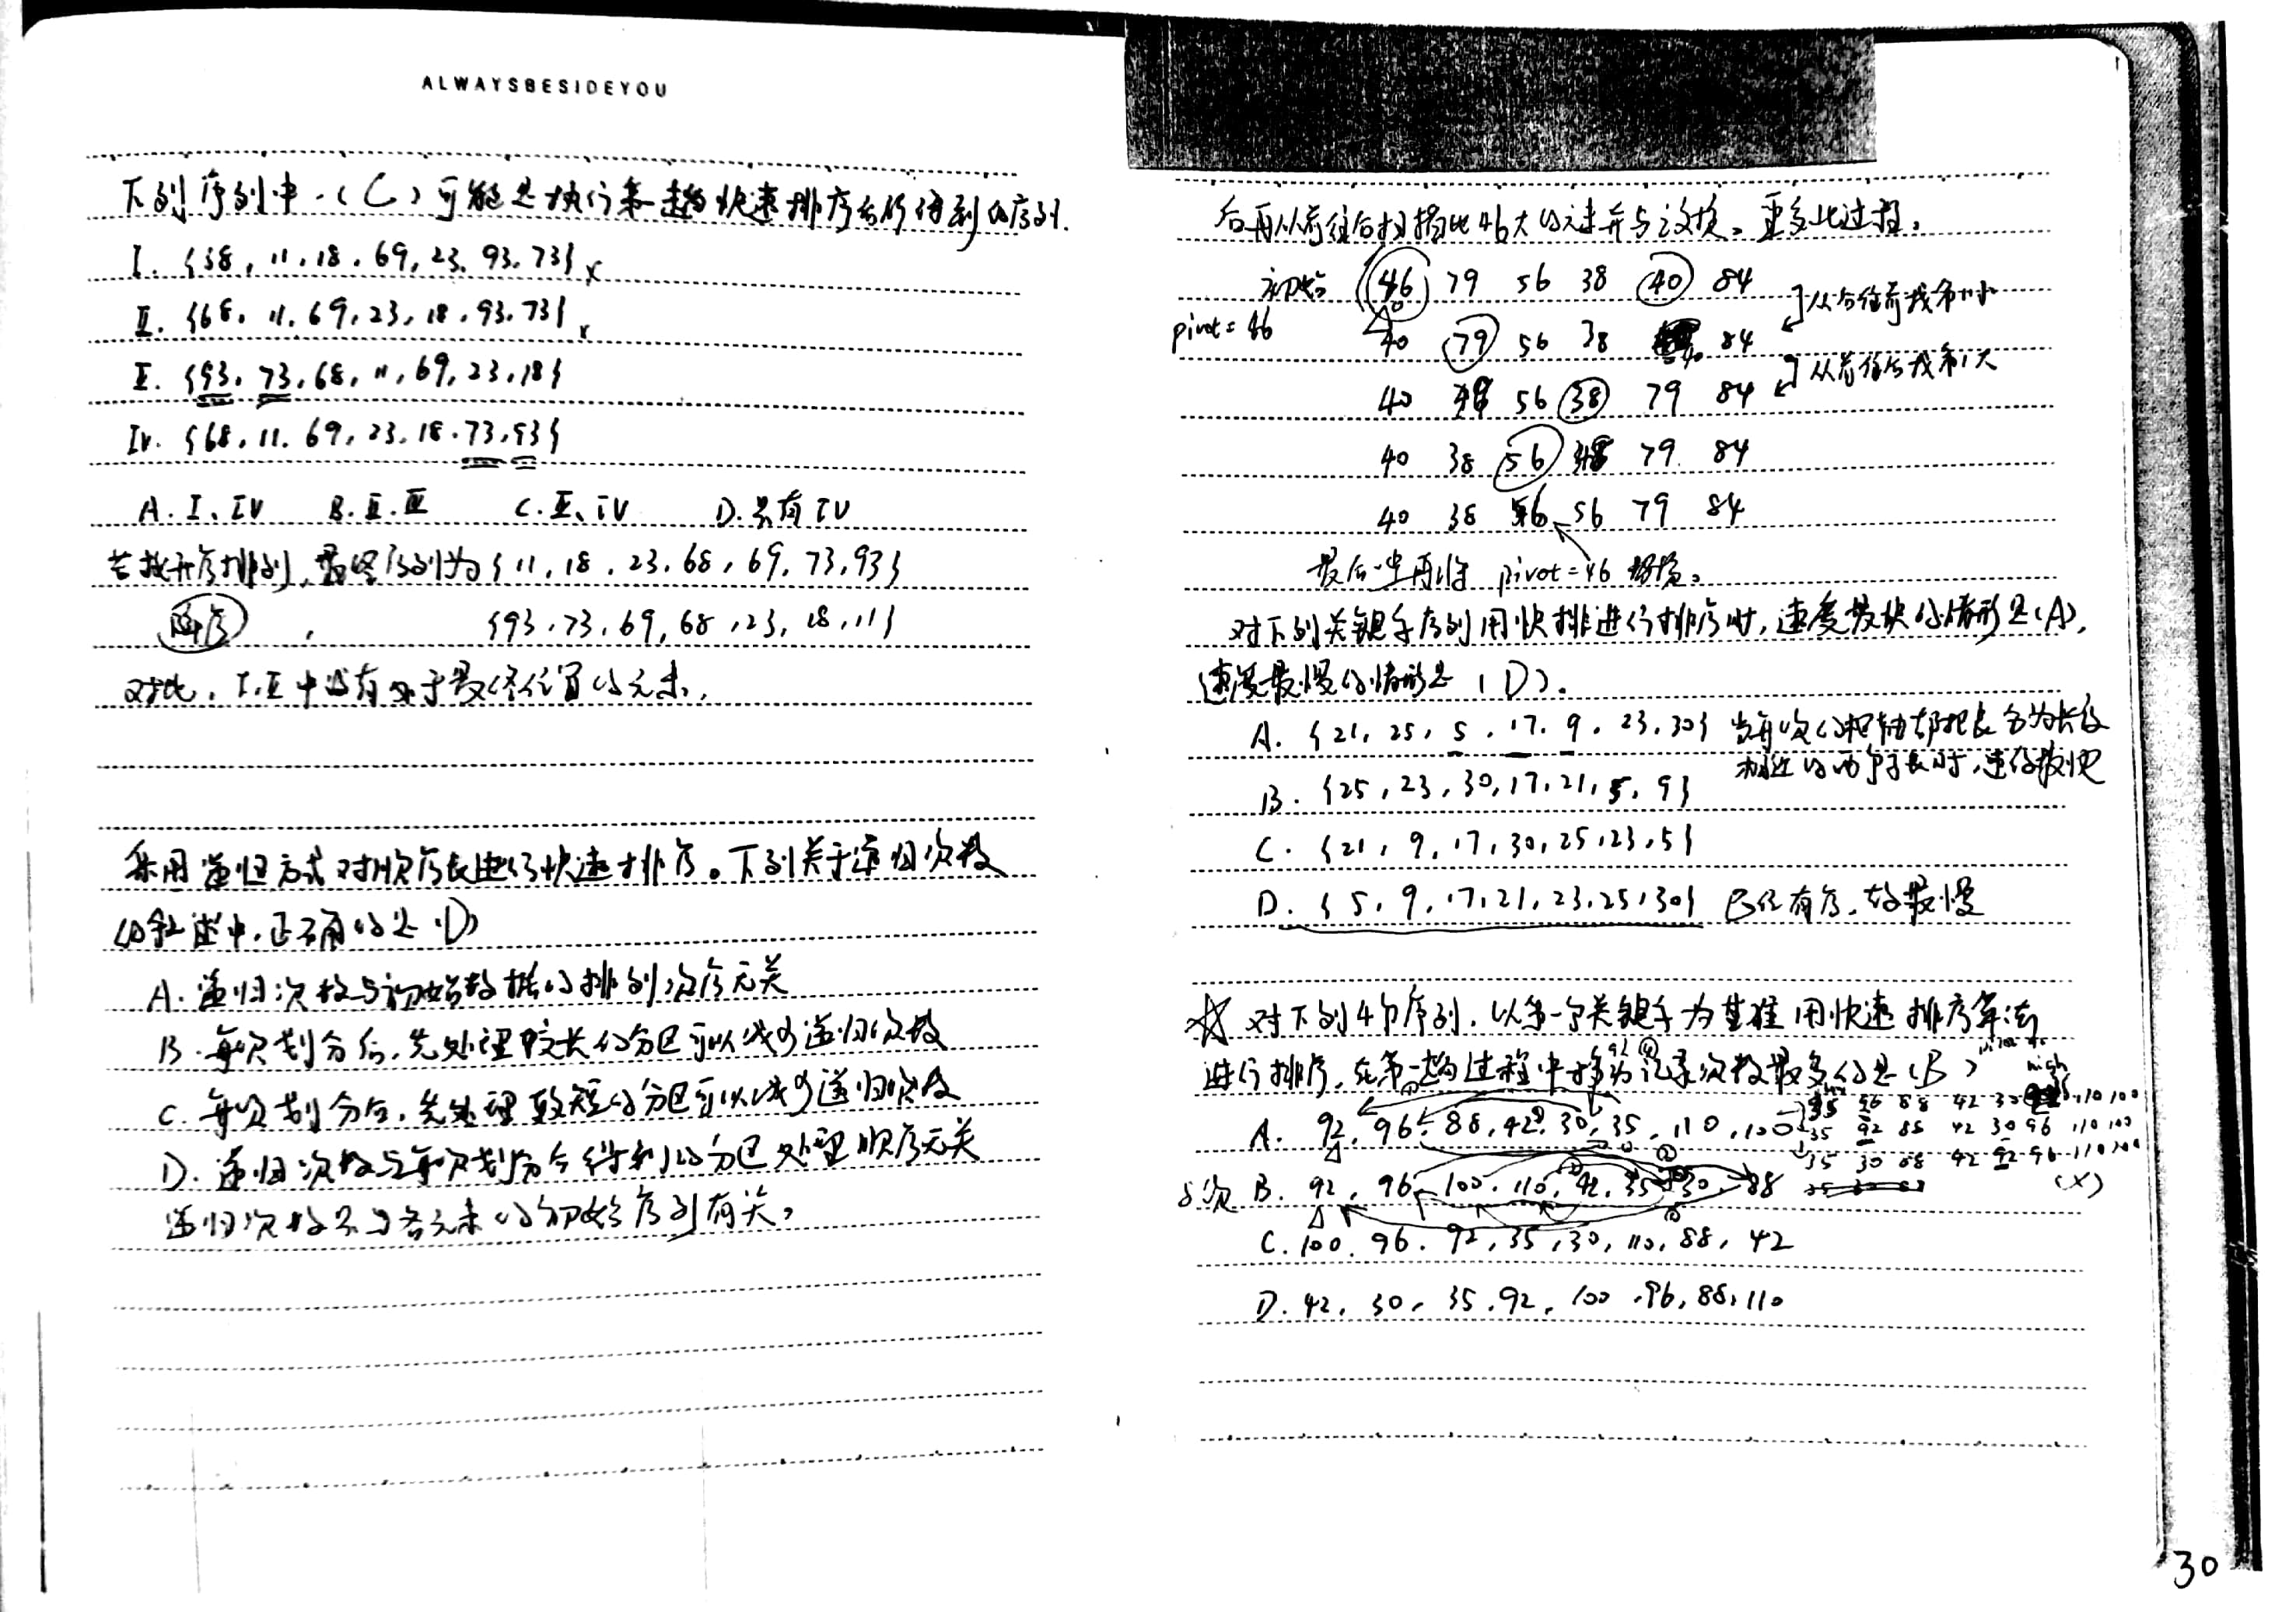 ALWAYSBESIDEYOU
下列序列中,(C)可能是执行第一趟快速排序后所得到的序列.
I. {68, 11, 18, 69, 23, 93, 73} x
II. {68, 11, 69, 23, 18, 93, 73} x
III. {93, 73, 68, 11, 69, 23, 18}
IV. {68, 11, 69, 23, 18, 73, 93}
A. I、IV B. II、III C. III、IV D. 只有IV
若按升序排列,最终序列为{11, 18, 23, 68, 69, 73, 93}
降序, {93, 73, 69, 68, 23, 18, 11}
对比, I、II中没有处于最终位置的元素.
采用递归方式对顺序表进行快速排序。下列关于递归次数
的叙述中,正确的是(D)
A. 递归次数与初始数据的排列次序无关
B. 每次划分后,先处理较长的分区可以减少递归次数
C. 每次划分后,先处理较短的分区可以减少递归次数
D. 递归次数与每次划分后得到的分区处理顺序无关
递归次数只与各元素的初始序列有关。
后再从前往后扫描比46大的元素并与之交换。重复此过程。
初始 46 79 56 38 40 84
pivot=46 40 79 56 38 84 从后往前找第1小
40 56 38 79 84 从前往后找第1大
40 38 56 79 84
40 38 56 79 84
最后一步再将 pivot=46
对下列关键字序列用快排进行排序时,速度最快的情形是(A),
速度最慢的情形是(D)。
A. {21, 25, 5, 17, 9, 23, 30} 当每次的枢轴都把表分为长度
相近的两个子表时,速度最快
B. {25, 23, 30, 17, 21, 5, 9}
C. {21, 9, 17, 30, 25, 23, 5}
D. {5, 9, 17, 21, 23, 25, 30} 已经有序,故最慢
☆ 对下列4个序列,以第一个关键字为基准用快速排序算法
进行排序,在第一趟过程中移动记录次数最多的是(B) high
A. 92, 96, 88, 42, 30, 35, 110, 100 35 96 88 42 30 110 100
35 92 88 42 30 96 110 100
35 30 88 42 92 96 110 100
B. 92, 96, 100, 110, 42, 35, 30, 88 (x)
C. 100, 96, 92, 35, 30, 110, 88, 42
D. 42, 30, 35, 92, 100, 96, 88, 110
30